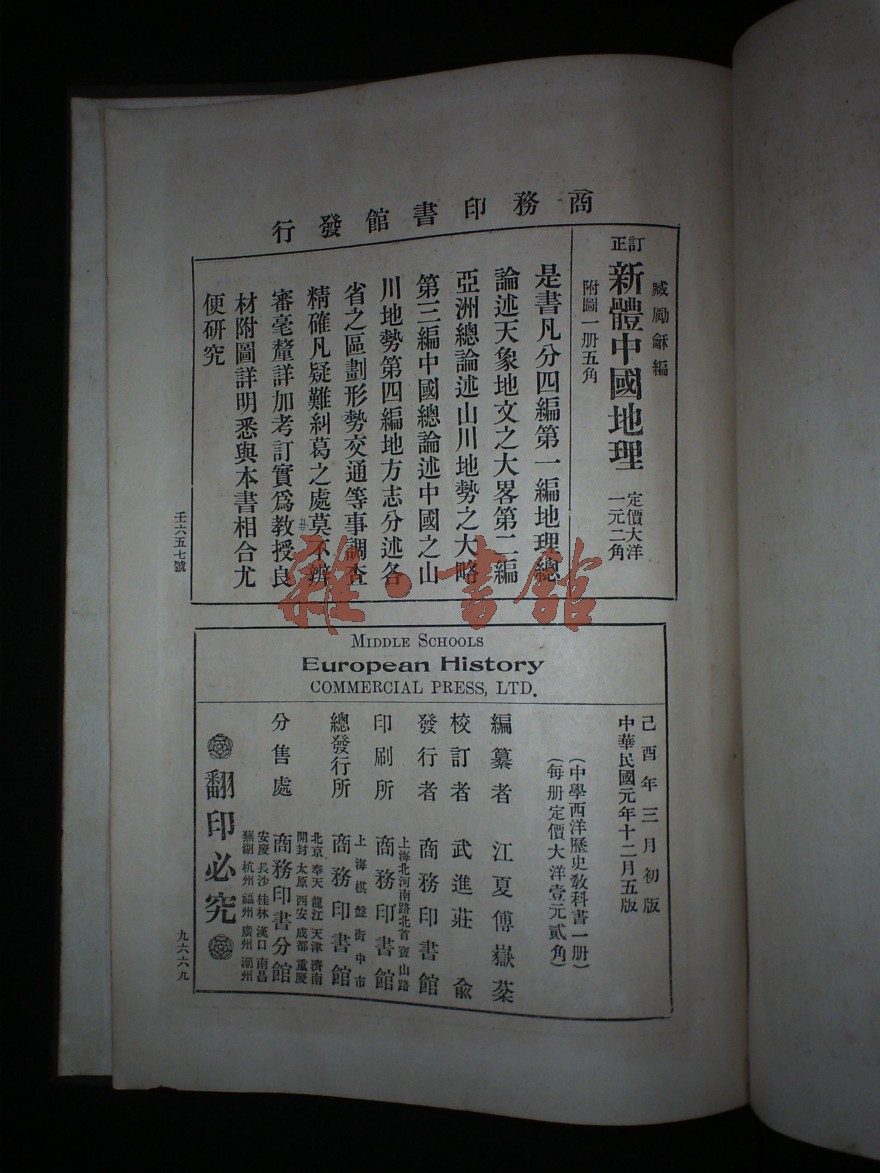 商務印書館發行
臧勵龢編
訂正
新體中國地理
定價大洋一元二角
附圖一册五角
是書凡分四編第一編地理總
論述天象地文之大畧第二編
亞洲總論述山川地勢之大略
第三編中國總論述中國之山
川地勢第四編地方志分述各
省之區劃形勢交通等事調查
精確凡疑難糾葛之處莫不辨
審毫釐詳加考訂實爲教授良
材附圖詳明悉與本書相合尤
便研究
壬六五七號
雜·書館
MIDDLE SCHOOLS
European History
COMMERCIAL PRESS, LTD.
己酉年三月初版
中華民國元年十二月五版
(中學西洋歷史教科書一册)
(每册定價大洋壹元貳角)
編纂者 江夏傅嶽棻
校訂者 武進莊俞
發行者 商務印書館
印刷所 上海北河南路北首寶山路 商務印書館
總發行所 上海棋盤街中市 商務印書館
分售處 北京 奉天 龍江 天津 濟南
開封 太原 西安 成都 重慶
商務印書分館
安慶 長沙 桂林 漢口 南昌
蕪湖 杭州 福州 廣州 潮州
翻印必究
九六六九